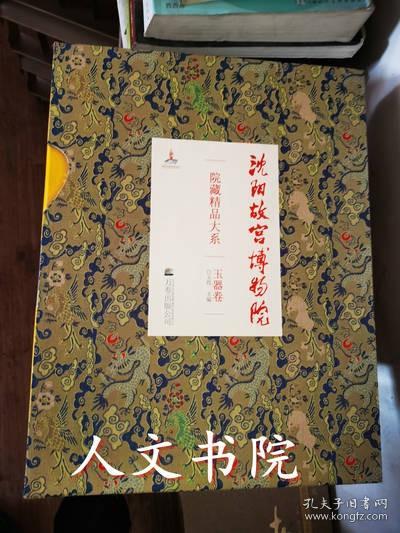 沈阳故宫博物院
院藏精品大系
玉器卷
主编
万卷出版公司
人文书院
孔夫子旧书网
www.kongfz.com